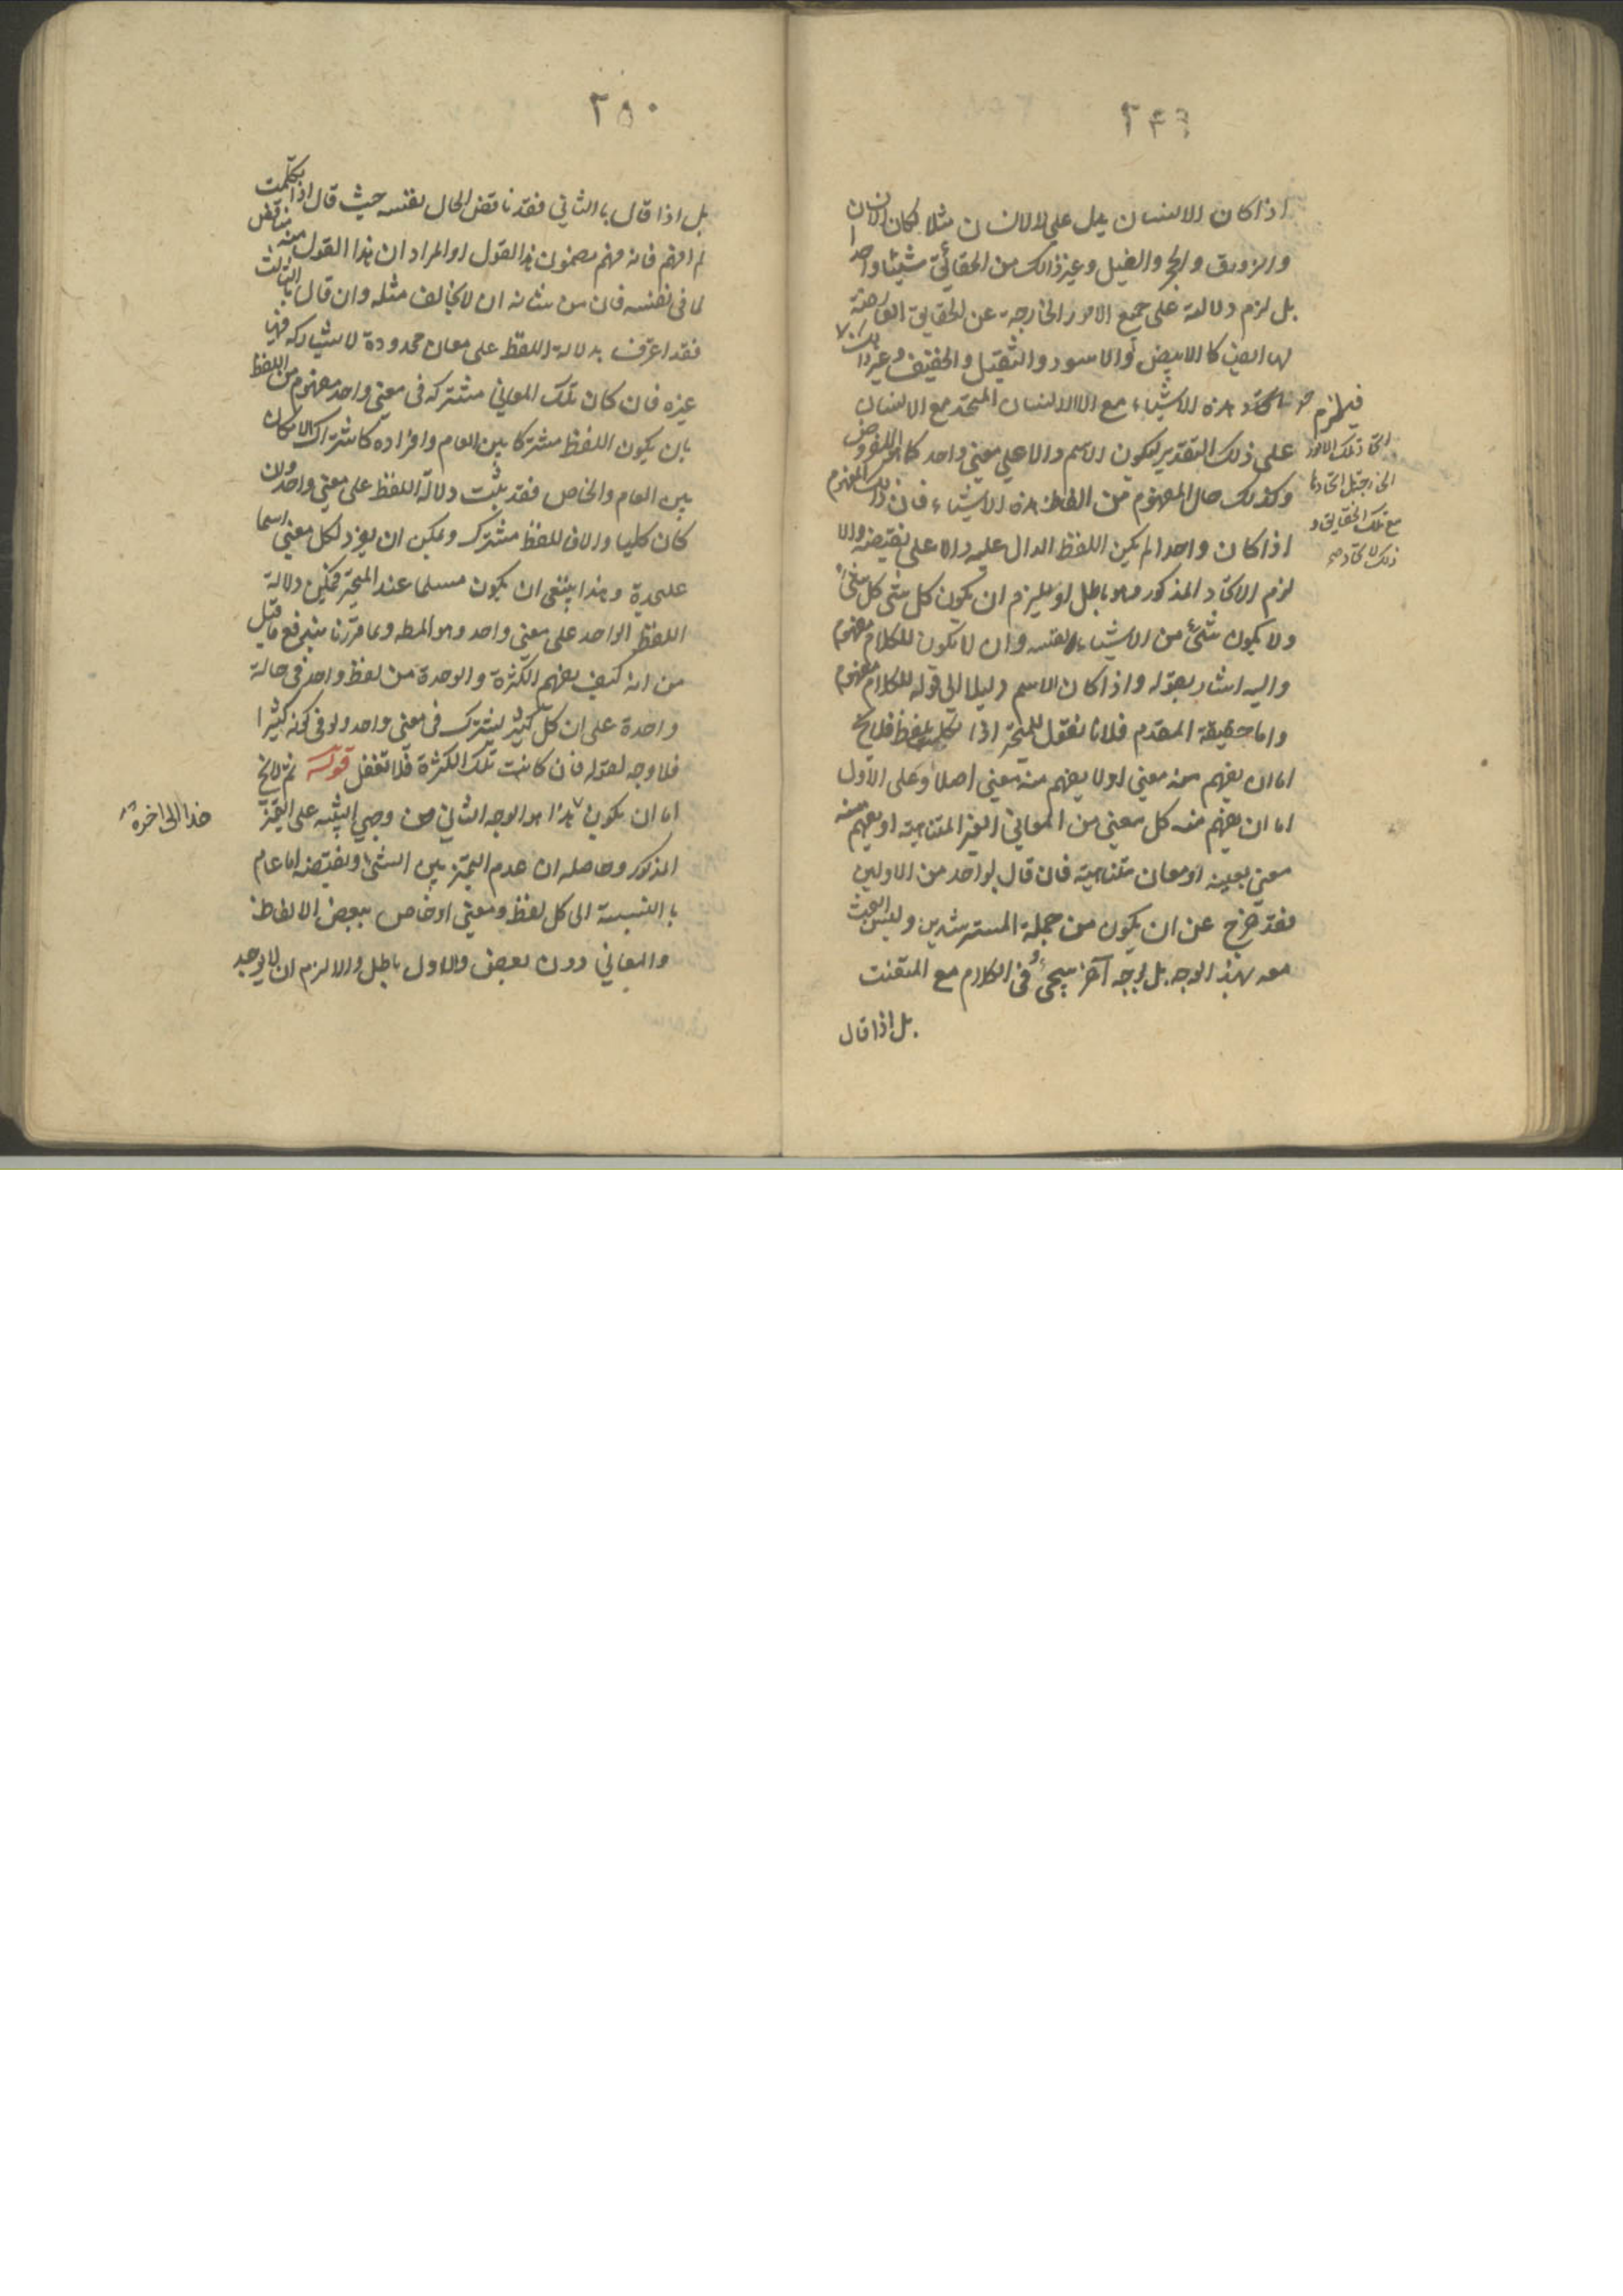 ٢٤٩
اذا كان الانسان يدل على الاانسان مثلا لكان الانسان
والزورق والحجر والفيل وغير ذالك من الحقائق شيئا واحدا
بل لزم دلالته على جميع الامور الخارجة عن الحقايق العارضة
لها ايضا كالابيض والاسود والثقيل والخفيف وغير ذلك
هذه الاشياء مع الاالانسان المتحد مع الانسان
على ذلك التقدير ليكون الاسم دالا على معنى واحد كما هو المفروض
وكذلك حال المفهوم من الفاظ هذه الاشياء فان ذلك المفهوم
اذا كان واحدا لم يكن اللفظ الدال عليه دالا على نقيضه والا
لزم الاتحاد المذكور وهو باطل لو يلزم ان يكون كل شئ كل شئ
ولا يكون شئ من الاشياء نفسه وان لا يكون للكلام مفهوم
واليه اشار بقوله واذا كان الاسم دليلا الى قوله للكلام مفهوم
واما حقيقة المقدم فلانا نقول للمتحير اذا تكلمت بلفظ فلا يخ
اما ان يفهم منه معنى اولا يفهم منه معنى اصلا وعلى الاول
اما ان يفهم منه كل معنى من المعاني الغير المتناهية او يفهم منه
معنى بعينه او معان متناهية فان قال بواحد من الاولين
فقد خرج عن ان يكون من جملة المسترشدين وليس البحث
معه بهذا الوجه بل بوجه آخر سيجئ في الكلام مع المتعنت
بل اذا قال
فيلزم
اتحاد تلك الامور
الخارجية اتحادها
مع تلك الحقايق و
ذلك لاتحاد
٢٥٠
بل اذا قال باالثاني فقد ناقض الحال نفسه حيث قال اذا تكلمت
لم افهم فانه فهم مضمون هذا القول او المراد ان هذا القول منه مناقض
لما في نفسه فان من شانه ان لا يخالف مثله وان قال باالثالث
فقد اعترف بدلالة اللفظ على معان محدودة لا يشاركه فيها
غيره فان كان تلك المعاني مشتركه في معنى واحد مفهوم من اللفظ
بان يكون اللفظ مشتركا بين العام وافراده كاشتراك الامكان
بين العام والخاص فقد يثبت دلالة اللفظ على معنى واحد وان
كان كليا والا فاللفظ مشترك ويمكن ان يفرد لكل معنى اسما
عليحدة وهذا ينبغي ان يكون مسلما عند المتحير فمكن دلالة
اللفظ الواحد على معنى واحد وهو المط وبما قررنا يندفع ما قيل
من انه كيف يفهم الكثرة والوحدة من لفظ واحد في حالة
واحدة على ان كل كثير يشترك في معنى واحد ولو في كونه كثيرا
فلا وجه لقوله فان كانت تلك الكثرة فلا تغفل قوله ثم لا يخ
اما ان يكون هذا هو الوجه الثاني من وجهي التنبيه على التميز
المذكور وحاصله ان عدم التميز بين الشئ ونقيضه اما عام
باالنسبة الى كل لفظ ومعنى او خاص ببعض الالفاظ
والمعاني دون بعض والاول باطل والا لزم ان لا يوجد
هذا الى اخره